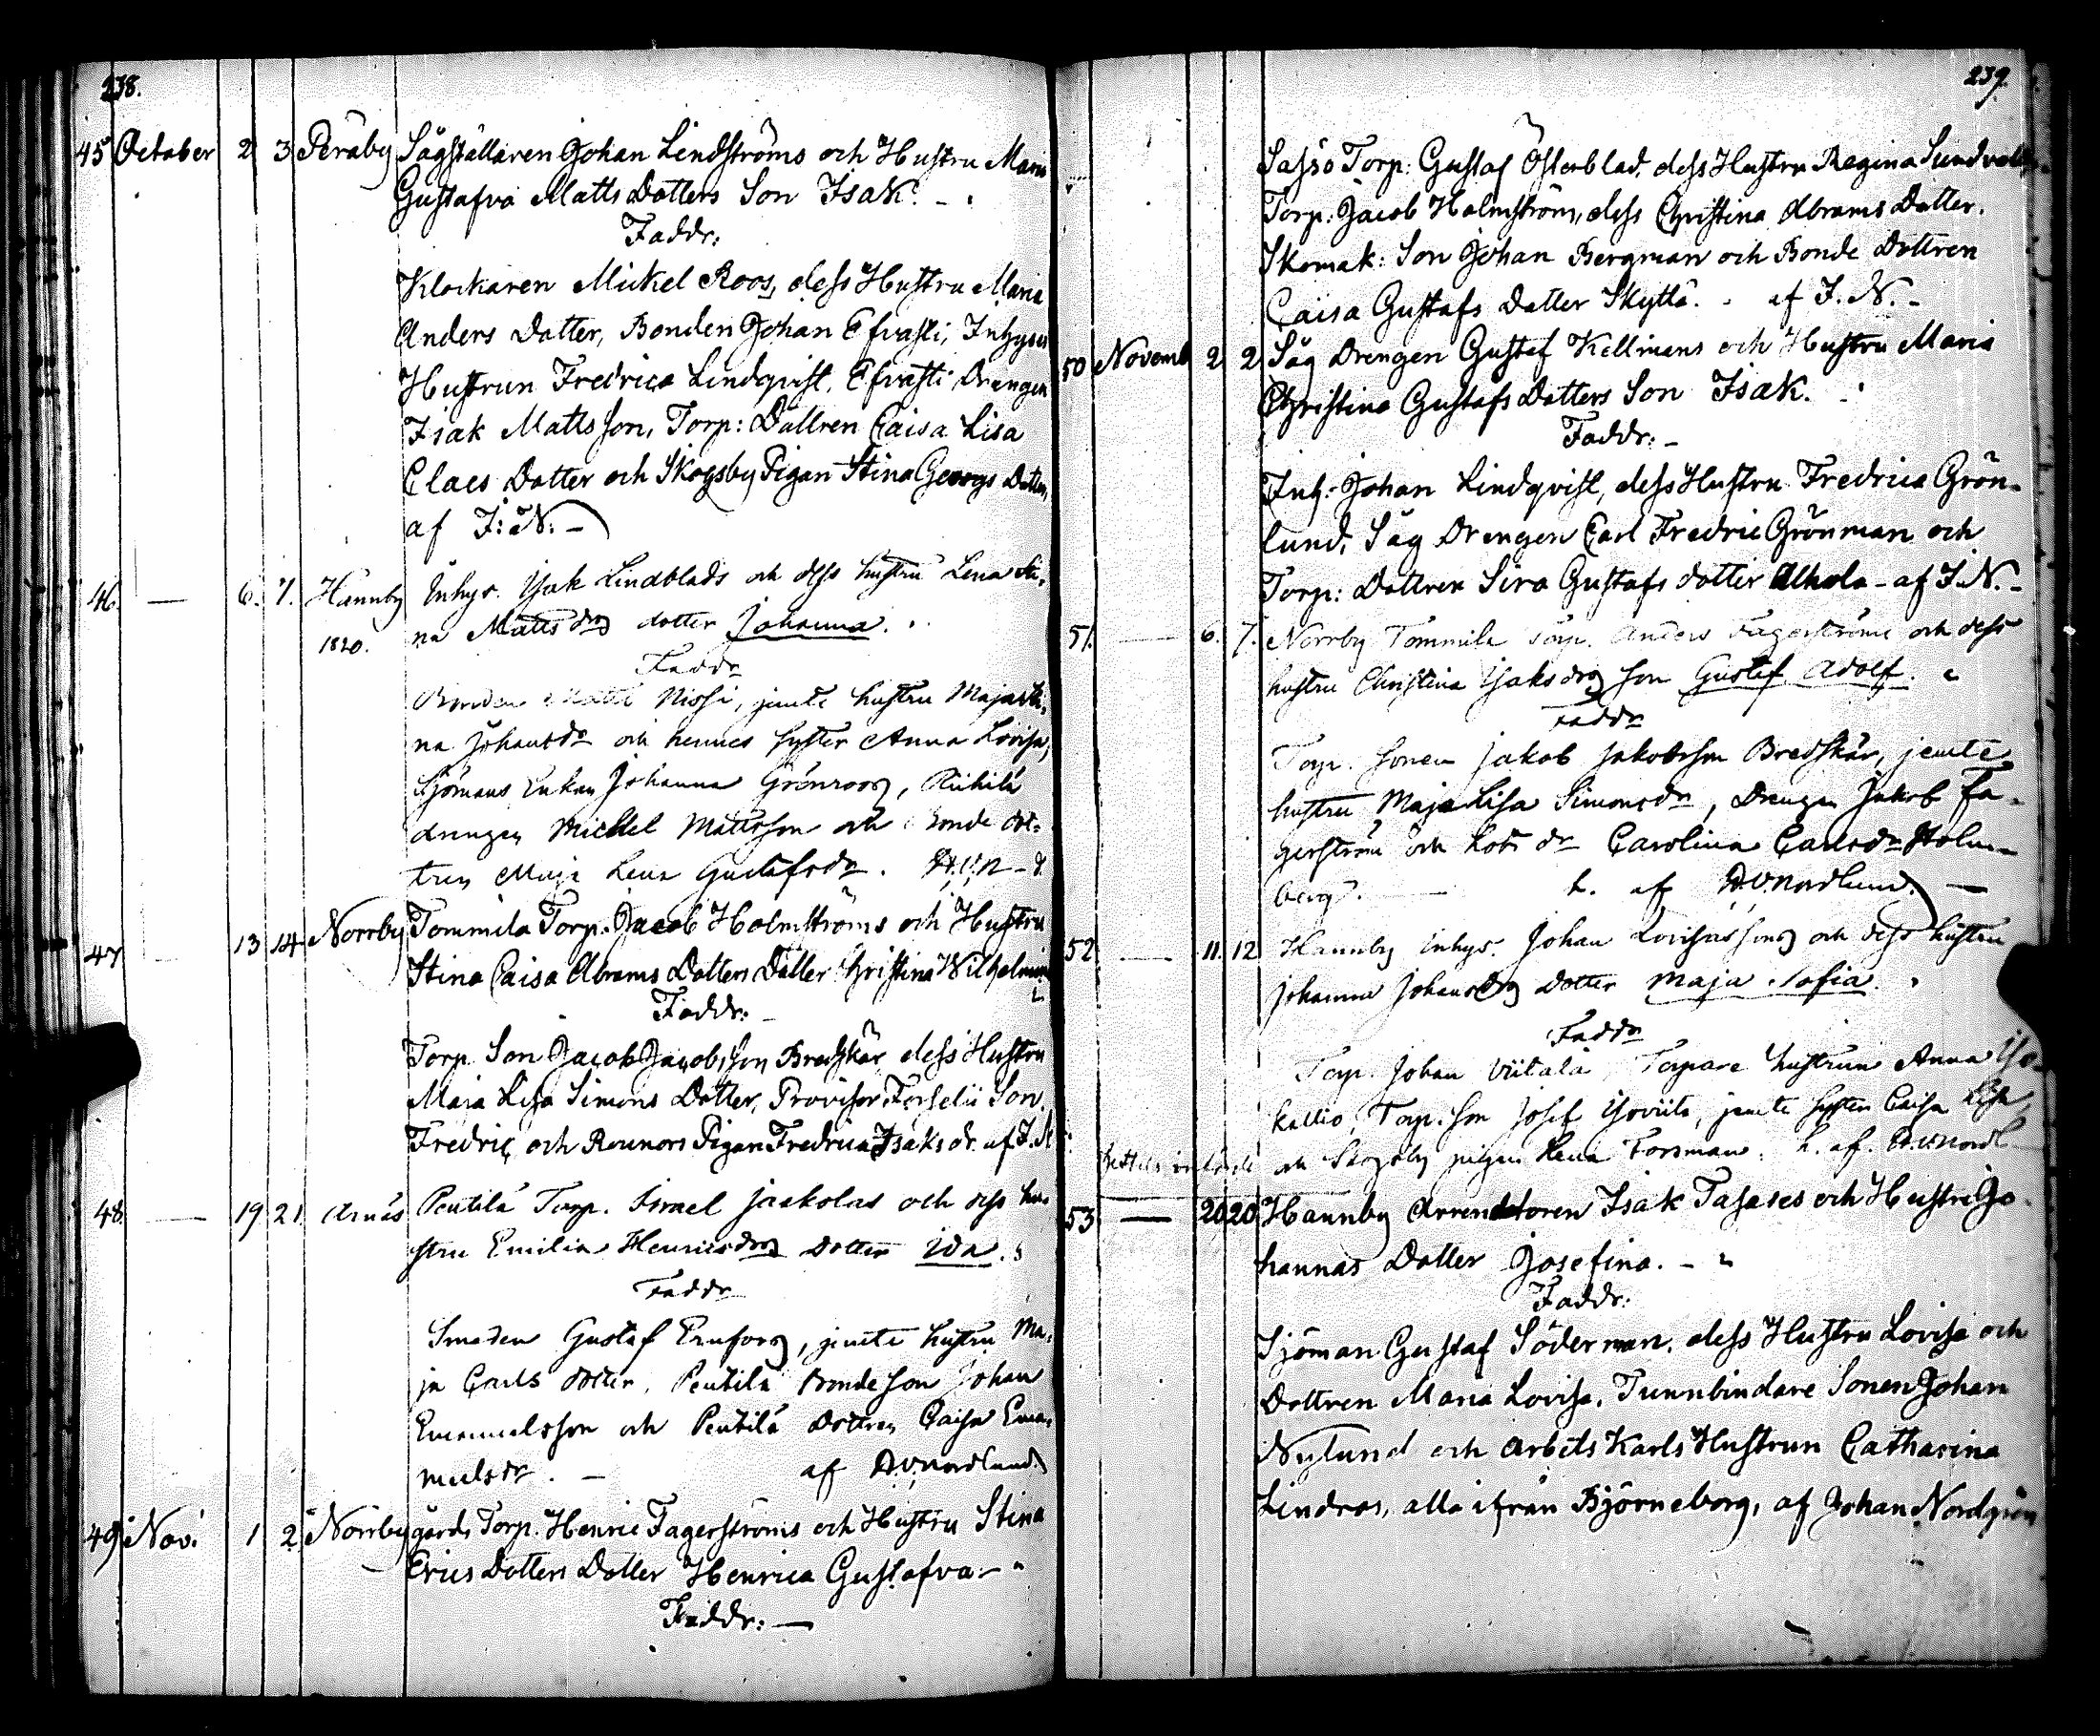 238.
45 October 2 3 Peraby Sågställaren Johan Lindströms och Hustru Maria
Gustafva Matts Dotters Son Isak.
Faddr:
Klockaren Mickel Roos, dess Hustru Maria
Anders Dotter, Bonden Johan Efvasti, Inhyses
Hustrun Fredrica Lindqvist, Efvasti Drengen
Isak Mattsson, Torp: Dottren Caisa Lisa
Claes Dotter och Skogsby Pigan Stina Georgs Dotter,
af J: N: –
46. — 6. 7. Hannby Inhys. Isak Lindblads och dess hustru Lena Sti-
1820. na Matts drs dotter Johanna.
Faddr
Bonden Matts Nissi, jemte hustru Maja Sti-
na Johansdr och hennes syster Anna Lovisa,
Sjömans Enkan Johanna Grönroos, Riihilä
drengen Michel Mattsson och Bonde dot-
tren Maja Lena Gustafsdr. A.V.N–d
47 — 13 14 Norrby Tommila Torp. Jacob Holmströms och Hustru
Stina Caisa Abrams Dotters Dotter Christina Wilhelmina
Faddr:
Torp. Son Jacob Jacobsson Bredskär, dess Hustru
Maja Lisa Simons Dotter, Provisor Forselii Son
Fredric och Rounors Pigan Fredrica Isaksdr. af J. N
48. — 19 21 Arnäs Pentilä Torp. Israel Jaakolas och dess hu-
stru Emilia Henricsdrs dotter Ida.
Faddr
Smeden Gustaf Ernfors, jemte hustru Ma-
ja Carls dotter, Pentilä Bondeson Johan
Emanuelsson och Pentilä Dottren Caisa Ema-
nuelsdr. – af A.V. Nordlund.
49 Nov: 1 2 Norrby gårds Torp. Henric Fagerströms och Hustru Stina
Erics Dotters Dotter Henrica Gustafva. –
Faddr: —
239.
Sassö Torp: Gustaf Österblad, dess Hustru Regina Sundvall,
Torp: Jacob Holmström, dess Christina Abrams Dotter.
Skomak: Son Johan Bergman och Bonde Dottren
Caisa Gustafs Dotter Skyttä. af J. N. –
50 Novemb 2 2 Såg Drengen Gustaf Kellmans och Hustru Maria
Christina Gustafs Dotters Son Isak.
Faddr: –
Inh: Johan Lindqvist, dess Hustru Fredrica Grön-
lund, Såg Drengen Carl Fredric Grönman och
Torp: Dottren Sira Gustafs dotter Alhola – af J. N. –
51. — 6. 7. Norrby Tommila Torp. Anders Fagerströms och dess
hustru Christina Isaksdrs son Gustaf Adolf.
Faddr
Torp. sonen Jakob Jakobsson Bredskär, jemte
hustru Maja Lisa Simonsdr, Drengen Jakob Fa-
gerström och Kob: dr Carolina Carlsdr Holm-
berg. — h. af A.V. Nordlund. —
52 — 11. 12 Hannby inhys. Johan Lovisassons och dess hustru
Johanna Johansdrs dotter Maja Sofia.
Faddr
Torp. Johan Viitala, Torpare hustrun Anna Iso-
kallio, Torp. son Josef Isoviita, jemte syster Caisa Lisa
och Skogsby pigan Lena Forsman. h. af. A.V. Nordl
53 — 20 20 Hannby Arrendatoren Isak Tasases och Hustru Jo-
hannas Dotter Josefina. –
Faddr:
Sjöman Gustaf Söderman, dess Hustru Lovisa och
Dottren Maria Lovisa, Tunnbindare Sonen Johan
Nylund och Arbets Karls Hustrun Catharina
Lindros, alla ifrån Björneborg, af Johan Nordgren